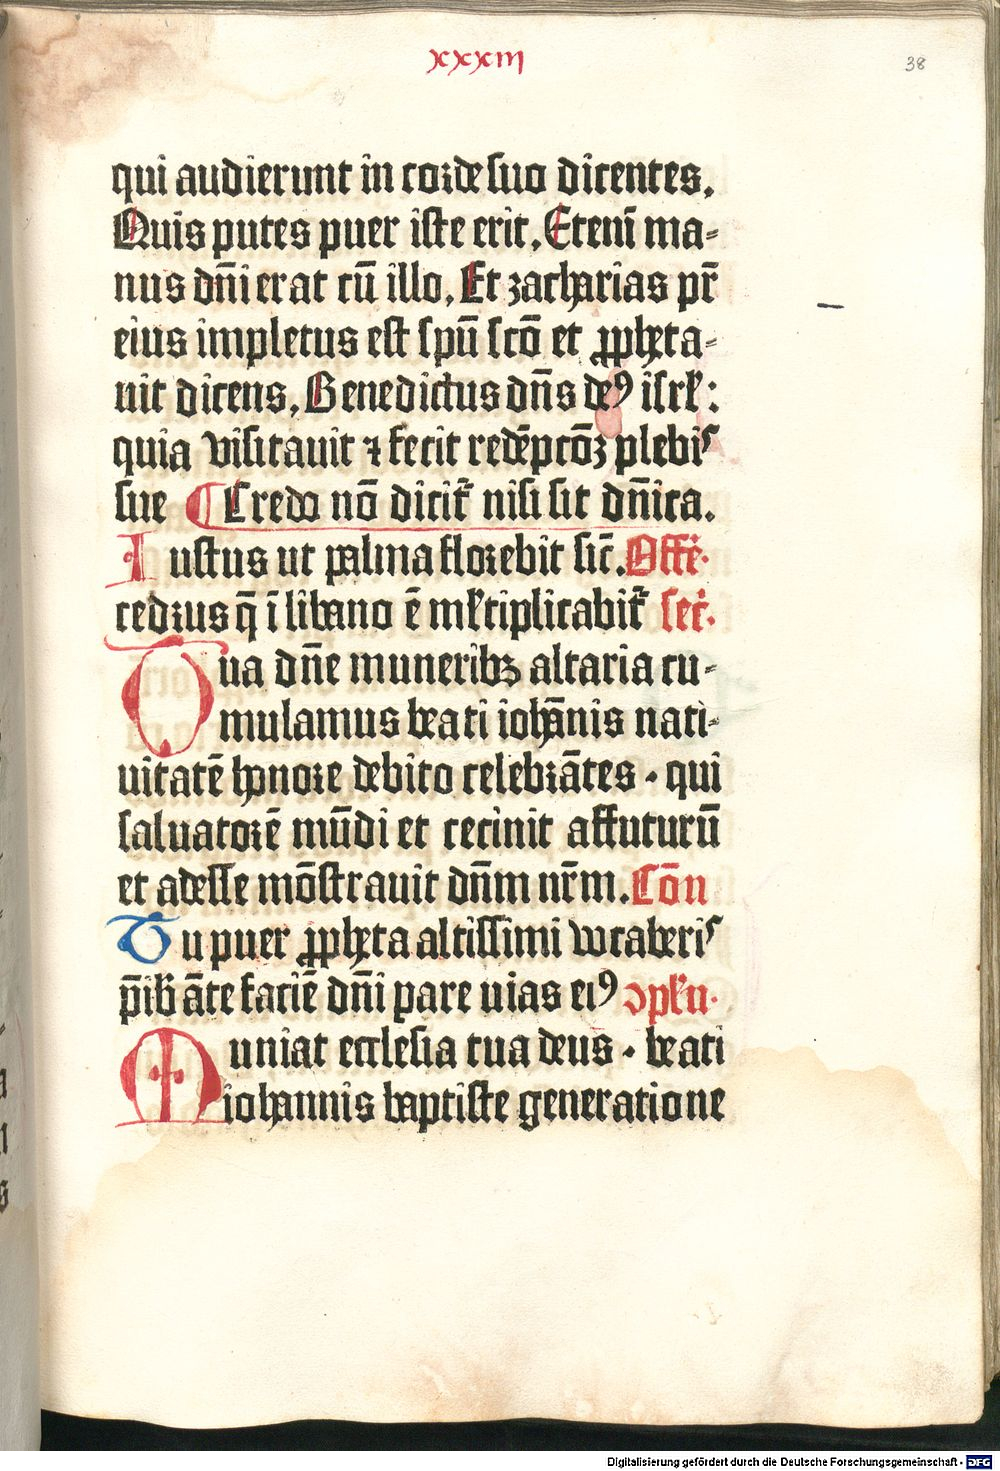 xxxiii
38
qui audierunt in corde suo dicentes.
Quis putes puer iste erit. Etenī ma-
nus dn̄i erat cū illo. Et zacharias pr̄
eius impletus est spū scō et ꝓpheta-
uit dicens. Benedictus dn̄s deꝰ isrl̄:
quia visitauit ⁊ fecit redēpcōꝫ plebis
sue ¶ Credo nō dicit᷑ nisi sit dn̄ica.
Iustus ut palma florebit sic̄. Offē.
cedrus q̄ ī libano ē ml̄tiplicabit᷑ sec̄.
Tua dn̄e muneribꝫ altaria cu-
mulamus beati ioh̄annis nati-
uitatē honore debito celebrātes . qui
saluatorē mūdi et cecinit affuturū
et adesse mōstrauit dn̄m nr̄m. Cōn
Tu puer ꝓpheta altissimi vocaberis
p̄ib āte faciē dn̄i pare uias eiꝰ ↄpl̄n.
Muniat ecclesia tua deus . beati
iohannis baptiste generatione
Digitalisierung gefördert durch die Deutsche Forschungsgemeinschaft - DFG